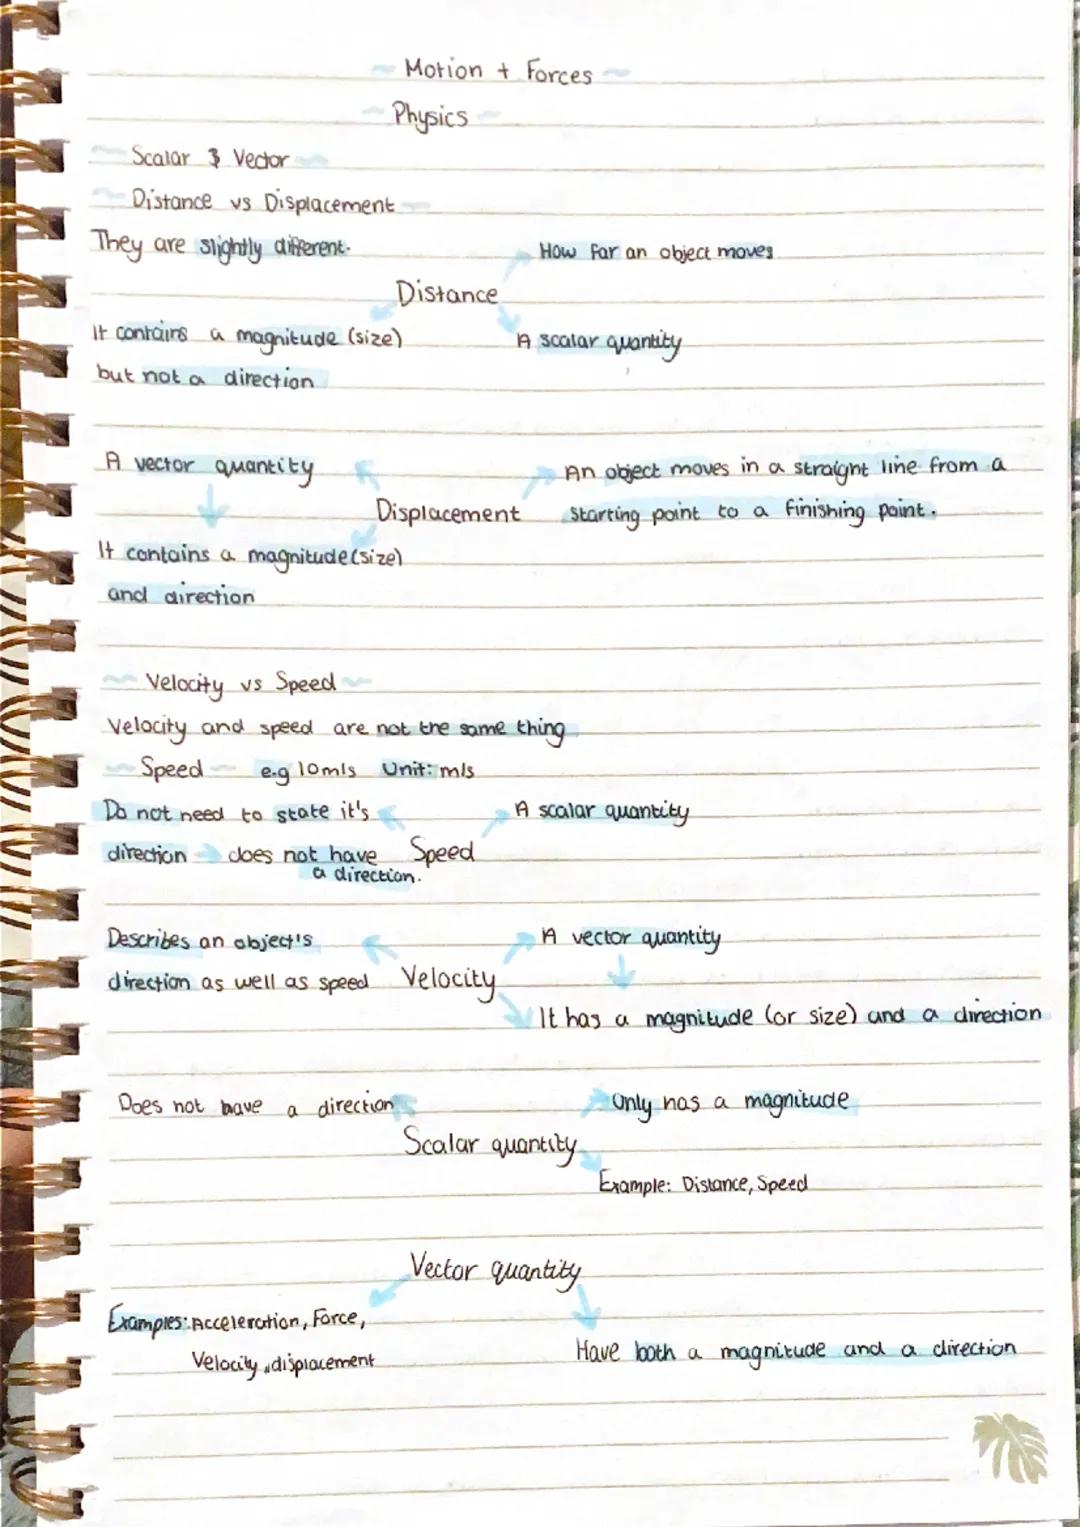 Motion + Forces
Physics
Scalar & Vector
Distance vs Displacement
They are slightly different.
How far an object moves
Distance
It contains a magnitude (size)
A scalar quantity
but not a direction
A vector quantity
An object moves in a straight line from a
Displacement
starting point to a finishing point.
It contains a magnitude (size)
and direction
Velocity vs Speed
Velocity and speed are not the same thing
Speed e.g 10m/s Unit: m/s
Do not need to state it's
A scalar quantity
direction does not have
Speed
a direction.
Describes an object's
A vector quantity
direction as well as speed
Velocity
It has a magnitude (or size) and a direction
Does not have a direction
Only has a magnitude
Scalar quantity
Example: Distance, Speed
Vector quantity
Examples: Acceleration, Force,
Have both a magnitude and a direction
Velocity, displacement